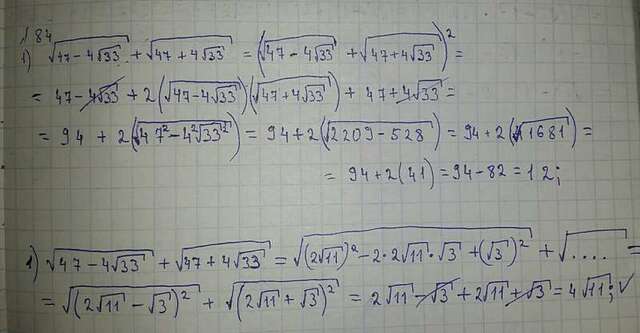 184
1) √(47 - 4√33) + √(47 + 4√33) = (√(47 - 4√33) + √(47 + 4√33))² =
= 47 - 4√33 + 2(√(47 - 4√33))(√(47 + 4√33)) + 47 + 4√33 =
= 94 + 2(√(47² - 4²√33²)) = 94 + 2(√(2209 - 528)) = 94 + 2(√1681) =
= 94 + 2(41) = 94 - 82 = 12;
1) √(47 - 4√33) + √(47 + 4√33) = √((2√11)² - 2·2√11·√3 + (√3)²) + √.... =
= √((2√11 - √3)²) + √((2√11 + √3)²) = 2√11 - √3 + 2√11 + √3 = 4√11; ✓